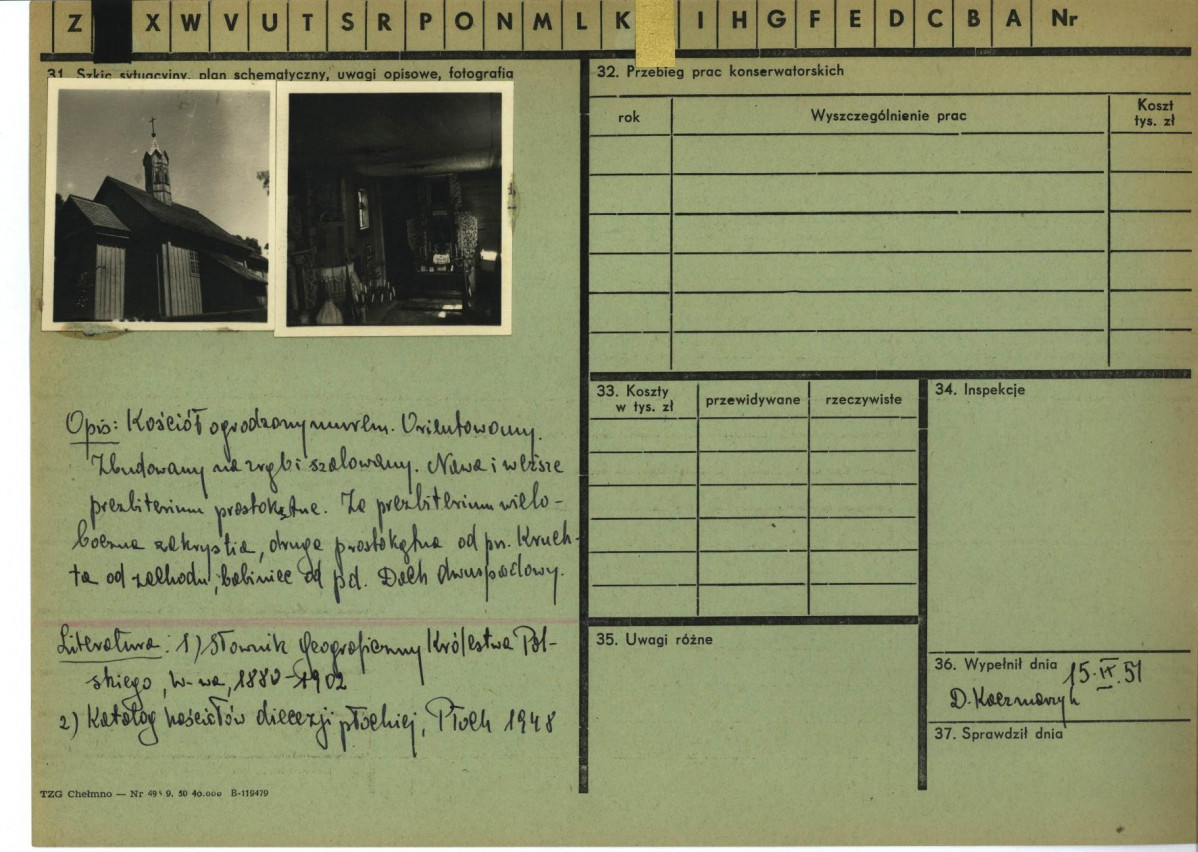 Z X W V U T S R P O N M L K I H G F E D C B A Nr
31. Szkic sytuacyjny, plan schematyczny, uwagi opisowe, fotografia
Opis: Kościół ogrodzony murem. Orientowany.
Zbudowany na zrąb i szalowany. Nawa i węższe
prezbiterium prostokątne. Za prezbiterium wielo-
boczna zakrystia, druga prostokątna od pn. Kruch-
ta od zachodu, babiniec od pd. Dach dwuspadowy.
Literatura: 1) Słownik Geograficzny Królestwa Pol-
skiego, W-wa, 1880-1902
2) Katalog kościołów diecezji płockiej, Płock 1948
TZG Chełmno — Nr 9. 50 40.000 B-119479
32. Przebieg prac konserwatorskich
rok Wyszczególnienie prac Koszt
tys. zł
33. Koszty
w tys. zł przewidywane rzeczywiste
34. Inspekcje
35. Uwagi różne
36. Wypełnił dnia 15.IX.51
D. Kaczmarzyk
37. Sprawdził dnia